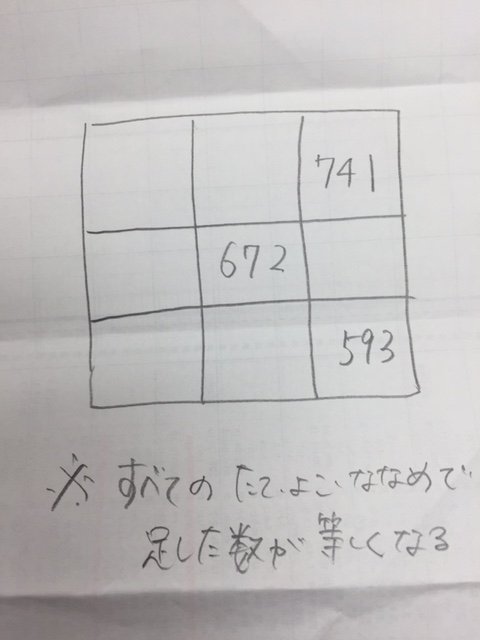 741
672
593
※ すべての たて、よこ、ななめで
足した数が 等しくなる